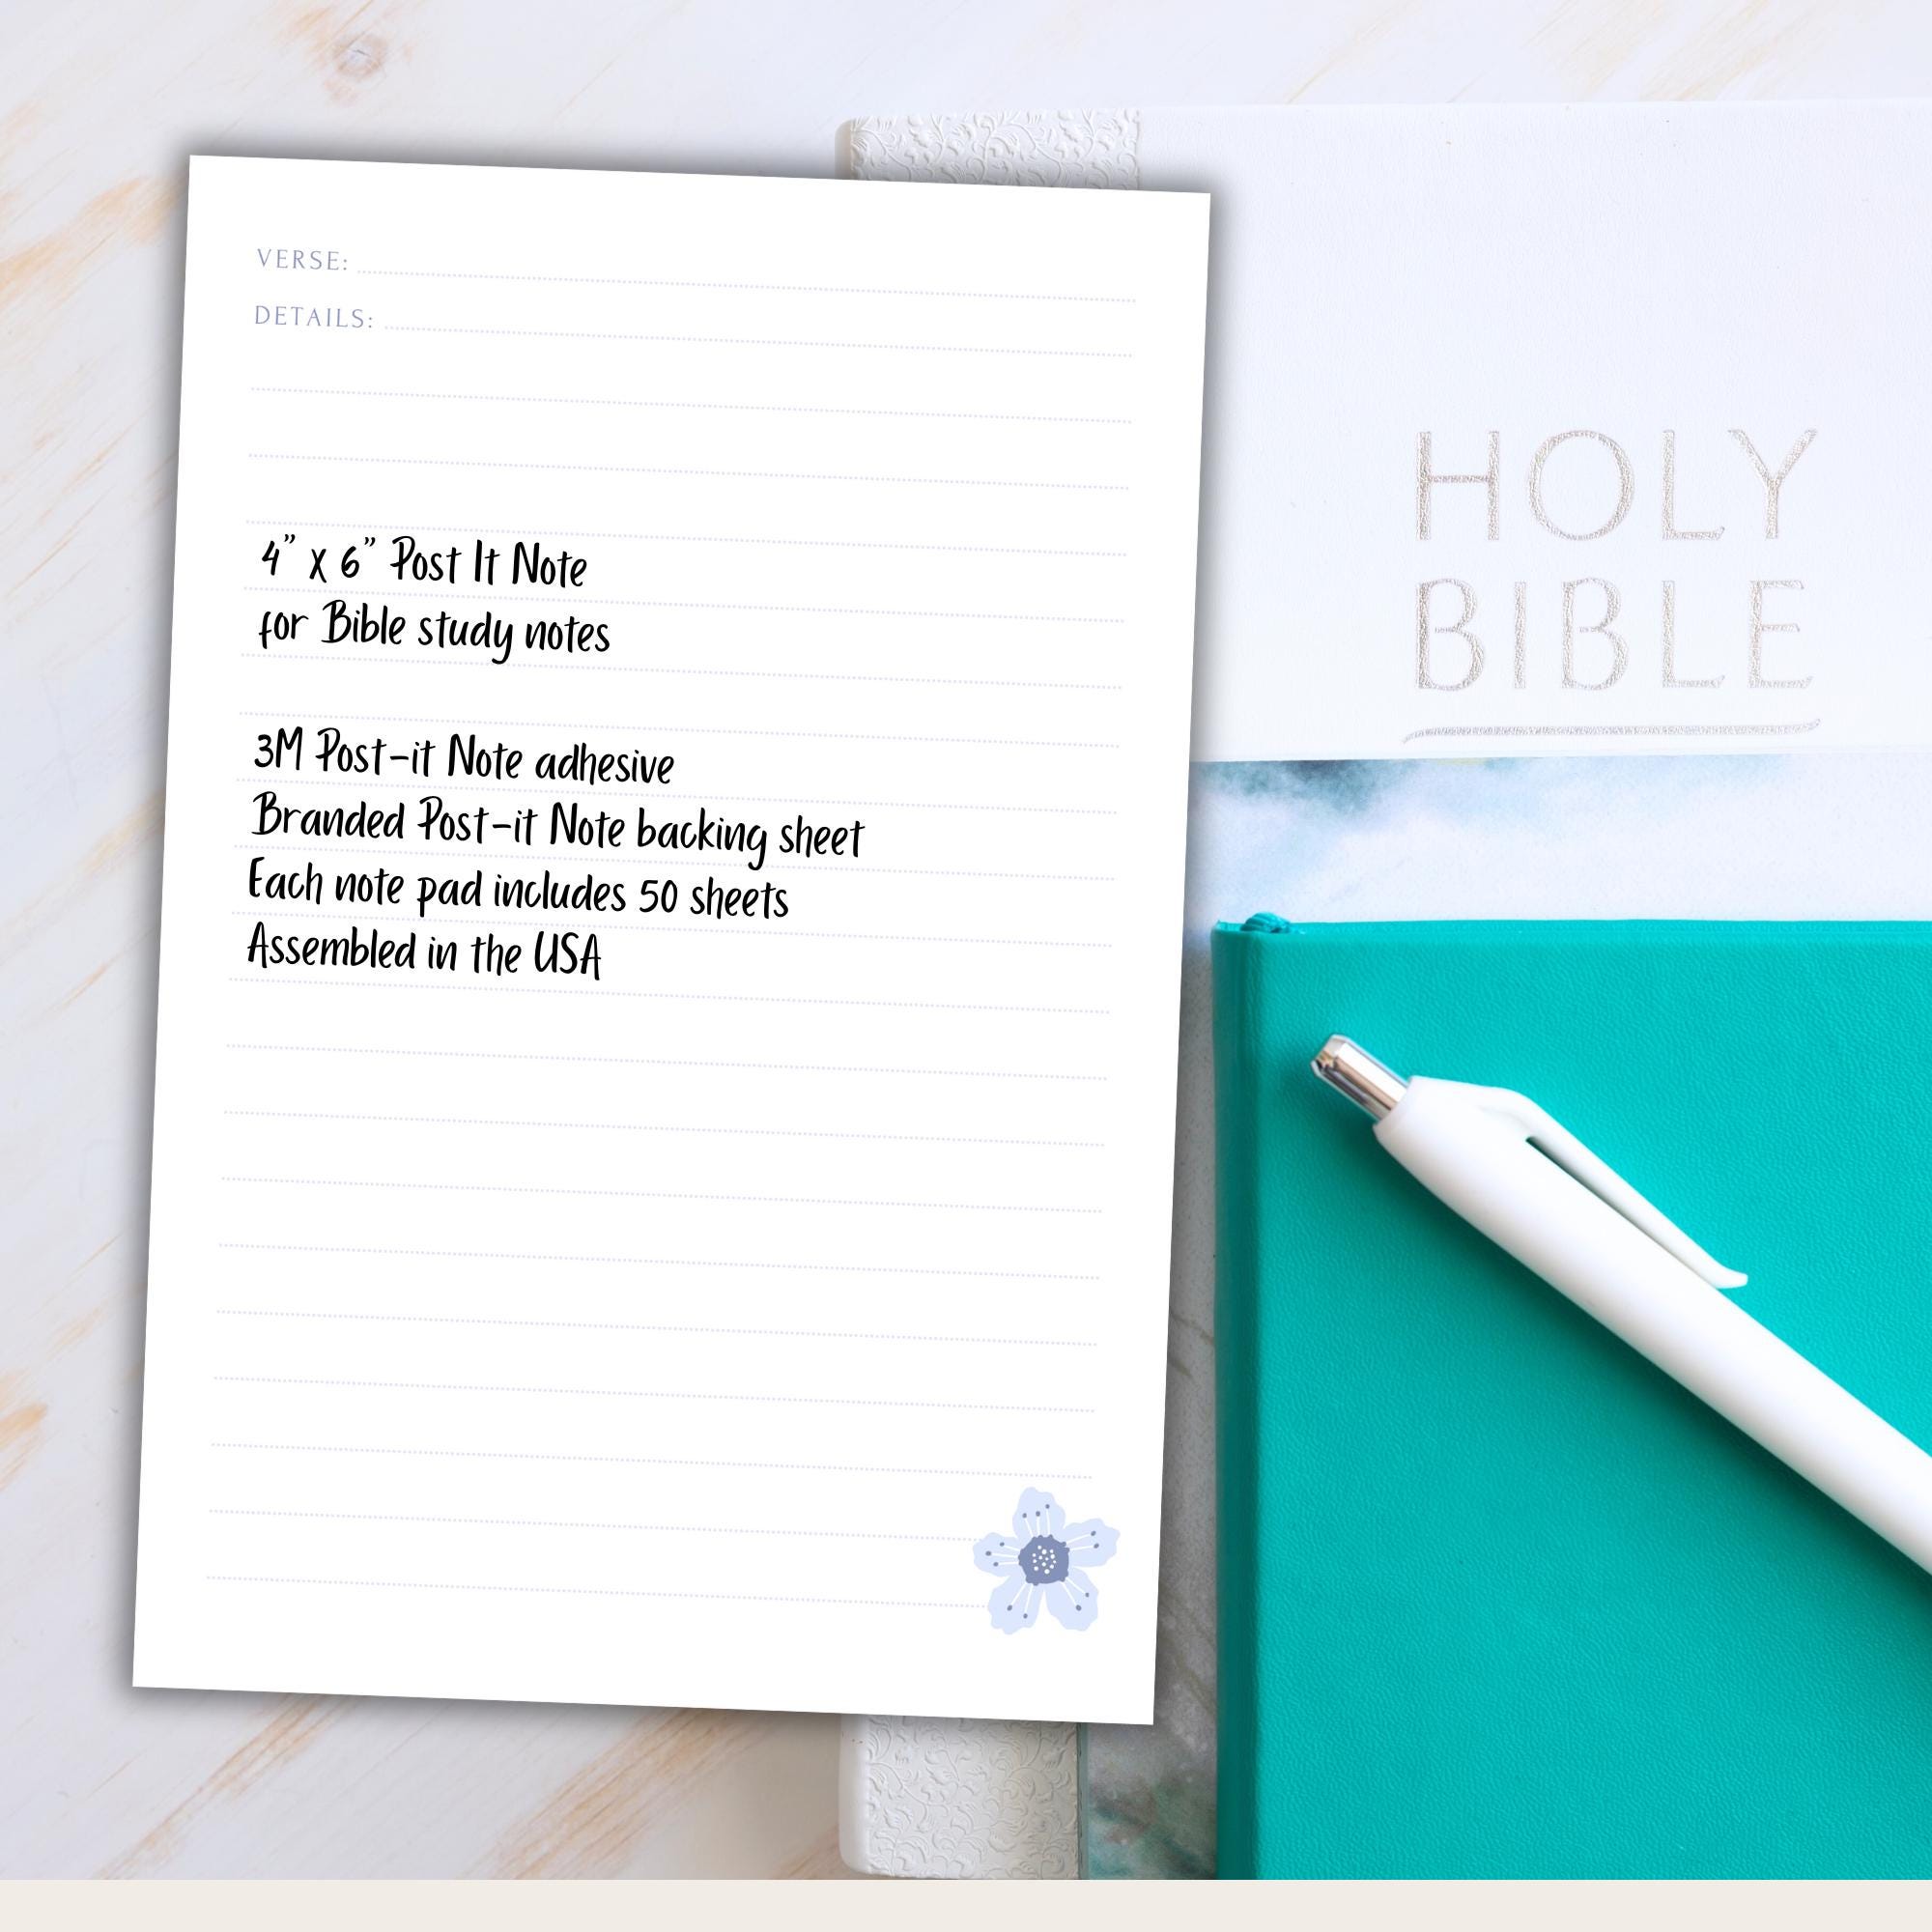 VERSE:
DETAILS:
4” x 6” Post It Note
for Bible study notes
3M Post-it Note adhesive
Branded Post-it Note backing sheet
Each note pad includes 50 sheets
Assembled in the USA
HOLY
BIBLE